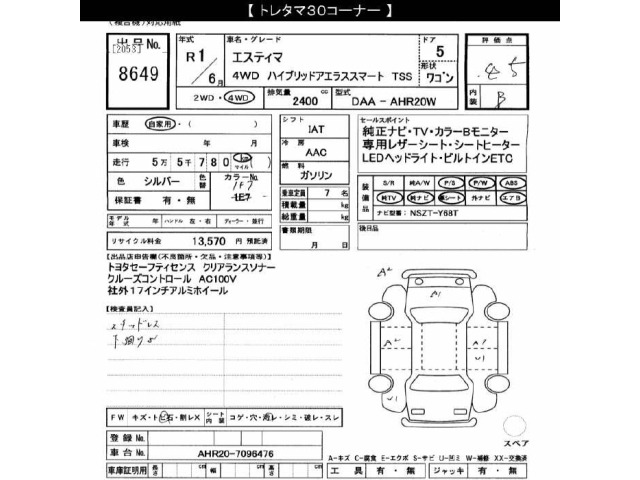 【 トレタマ30コーナー 】
(複合機)対応用紙
出品No.
[2053]
8649
年式
R1
6月
車名・グレード
エスティマ
4WD ハイブリッドアエラススマート TSS
ドア
5
形状
ワゴン
評価点
4.5
内装
B
2WD・4WD
排気量
2400
cc
型式
DAA－AHR20W
車歴
自家用・( )
車検 年 月
走行 5万5千780
km
マイル
色 シルバー
色替
カラーNo.
1F7
1E7
保証書 有・無
シフト
IAT
冷房
AAC
燃料
ガソリン
乗車定員 7 名
積載量 kg
総重量 kg
セールスポイント
純正ナビ・TV・カラーBモニター
専用レザーシート・シートヒーター
LEDヘッドライト・ビルトインETC
装備品
S/R 純A/W P/S P/W ABS
純TV 純ナビ 革シート 外ナビ エアB
ナビ型番: NSZT-Y68T
モデル年式 年 ハンドル 左・右 ディーラー・並行
リサイクル料金 13,570 円 預託済
書類期限
月 日
後日品
【出品店申告欄(不良箇所・欠品・注意事項等)】
トヨタセーフティセンス クリアランスソナー
クルーズコントロール AC100V
社外17インチアルミホイール
【検査員記入】
スタッドレス
下廻りサ
A2
A1
A2
U1
U1
FW キズ・トビ石・削レX
シート内装
コゲ・穴・汚レ・シミ・破レ・スレ
スペア
登録No.
車台No. AHR20-7096476
A-キズ C-腐食 E-エクボ S-サビ U-凹ミ W-補修 XX-交換済
車庫証明用 長さ cm 幅 cm 高さ cm 工具 有・無 ジャッキ 有・無